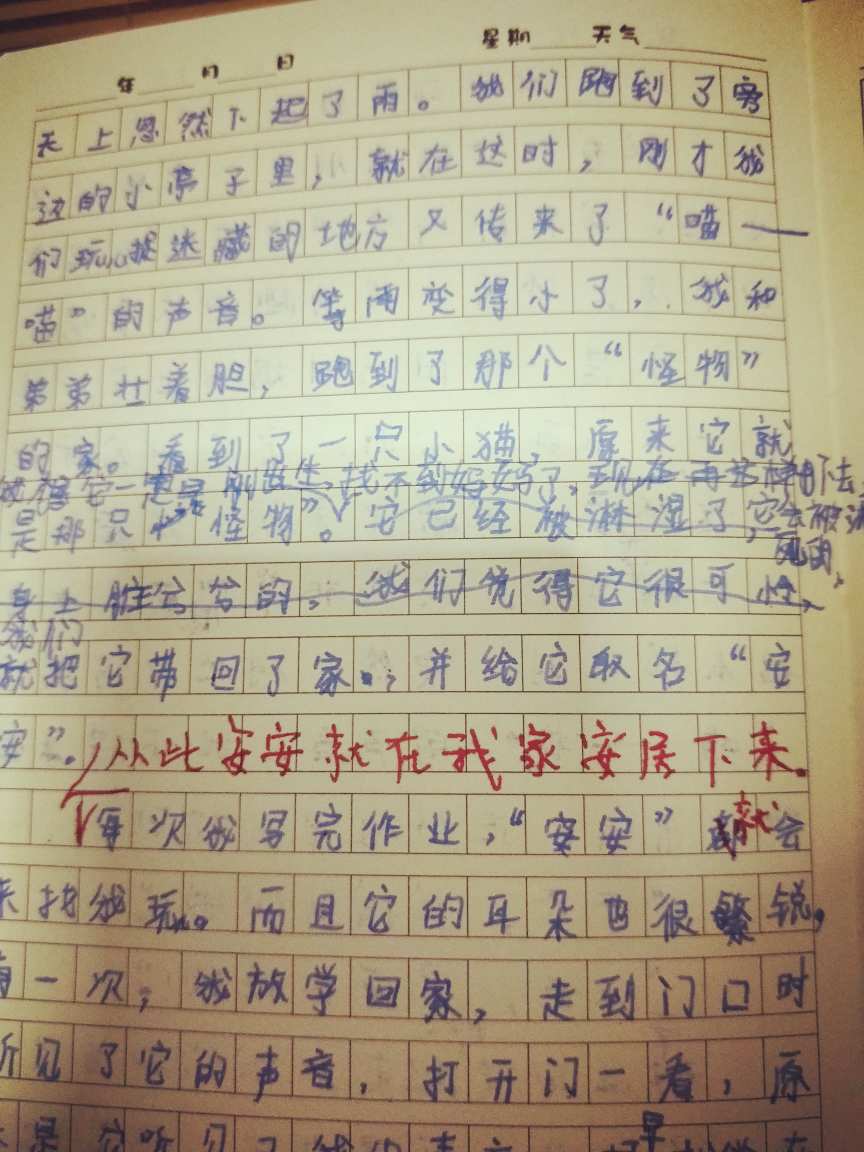 年 月 日 星期 天气
天上忽然下起了雨。我们跑到了旁
边的小亭子里，就在这时，刚才我
们玩捉迷藏的地方又传来了“喵——
喵”的声音。等雨变得小了，我和
弟弟壮着胆，跑到了那个“怪物”
的家。看到了一只小猫，原来它就
它一定是刚出生，找不到妈妈了，现在再这样下去，
是那只“怪物”。它已经被淋湿了，它会被淋
死的，
身上脏兮兮的，我们觉得它很可怜，
我们
就把它带回了家。，并给它取名“安
安”。从此安安就在我家安居下来。
每次我写完作业，“安安”就会
来找我玩。而且它的耳朵也很繁锐，
有一次，我放学回家，走到门口时
听见了它的声音，打开门一看，原
来是它听见了我